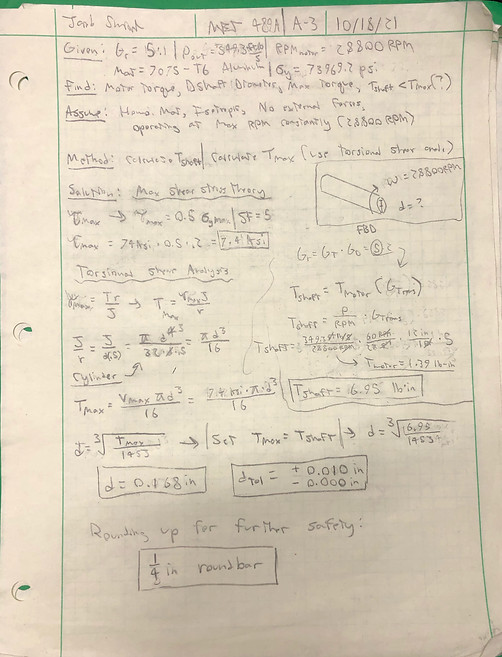 MET 489A | A-3 | 10/18/21
Given: Gr = 5:1 | Pout = 349.3 | RPM motor = 28800 RPM
Mat = 7075-T6 Aluminum | σy = 73969.2 psi
Find: Motor Torque, DShaft: Diameter, Max Torque, Tshaft < Tmax (?)
Assume: Homo. Mat, Isotropic, No external Forces,
operating at Max RPM constantly (28800 RPM)
Method: Calculate Tshaft | Calculate Tmax (Use torsional shear anal.)
Solution: Max shear stress theory
ω = 28800 RPM
d = ?
FBD
τmax → τmax = 0.5 σymax | SF = 5
τmax = 74 ksi · 0.5 · .2 = 7.4 ksi
Gr = GT · GD = 5
Torsional shear Analysis
τmax = Tr/J → Tmax = τmax J/r
Tshaft = Tmotor (GTrans)
Tshaft = P/RPM · GTrans
J/r = J/d(.5) = π d^4/32 · d · .5 = π d^3/16
Tmotor = 1.39 lb-in
Cylinder
Tshaft = 6.95 lb·in
Tmax = τmax π d^3/16 = 7.4 ksi · π · d^3/16
d = ∛(Tmax/1453) → | Set Tmax = Tshaft | → d = ∛(6.95/1453)
d = 0.168 in
dTol = + 0.010 in
- 0.000 in
Rounding up for further safety:
1/4 in round bar